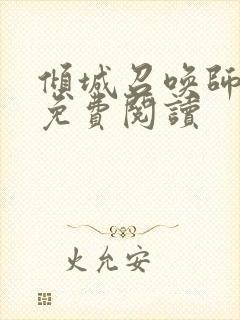 傾城召喚師
免費閱讀
火允安